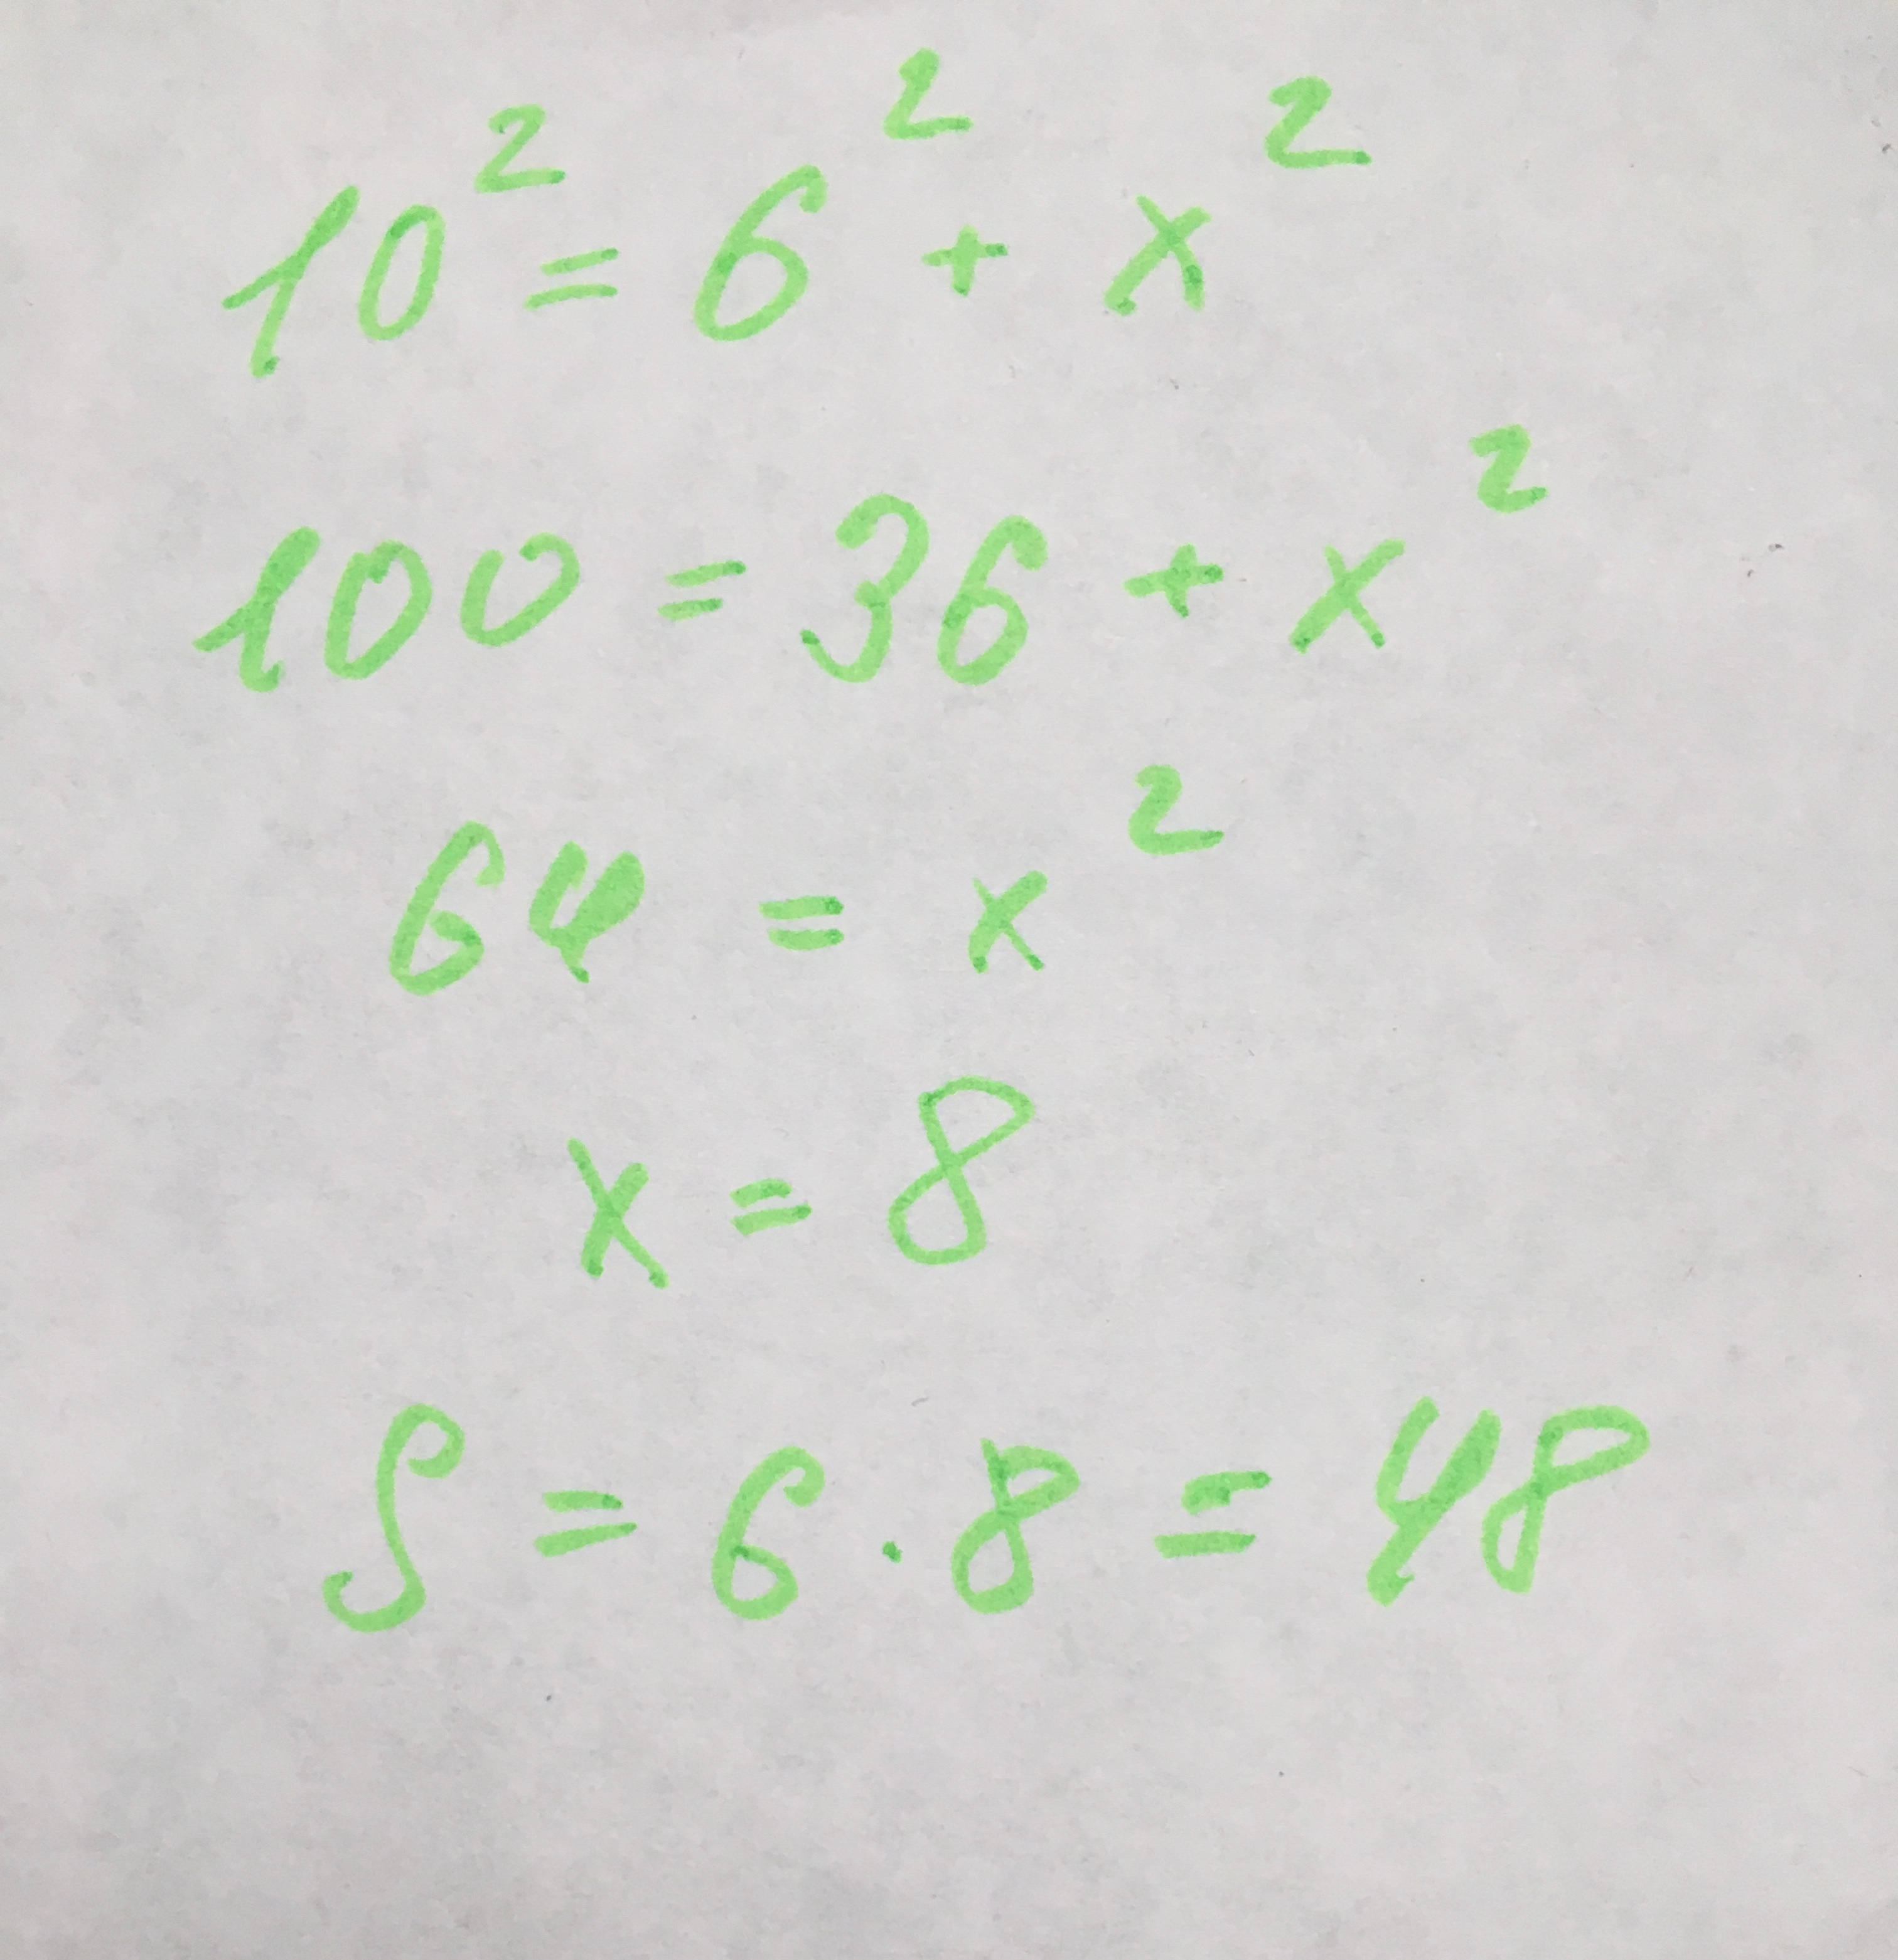 10² = 6² + x²
100 = 36 + x²
64 = x²
x = 8
S = 6 · 8 = 48